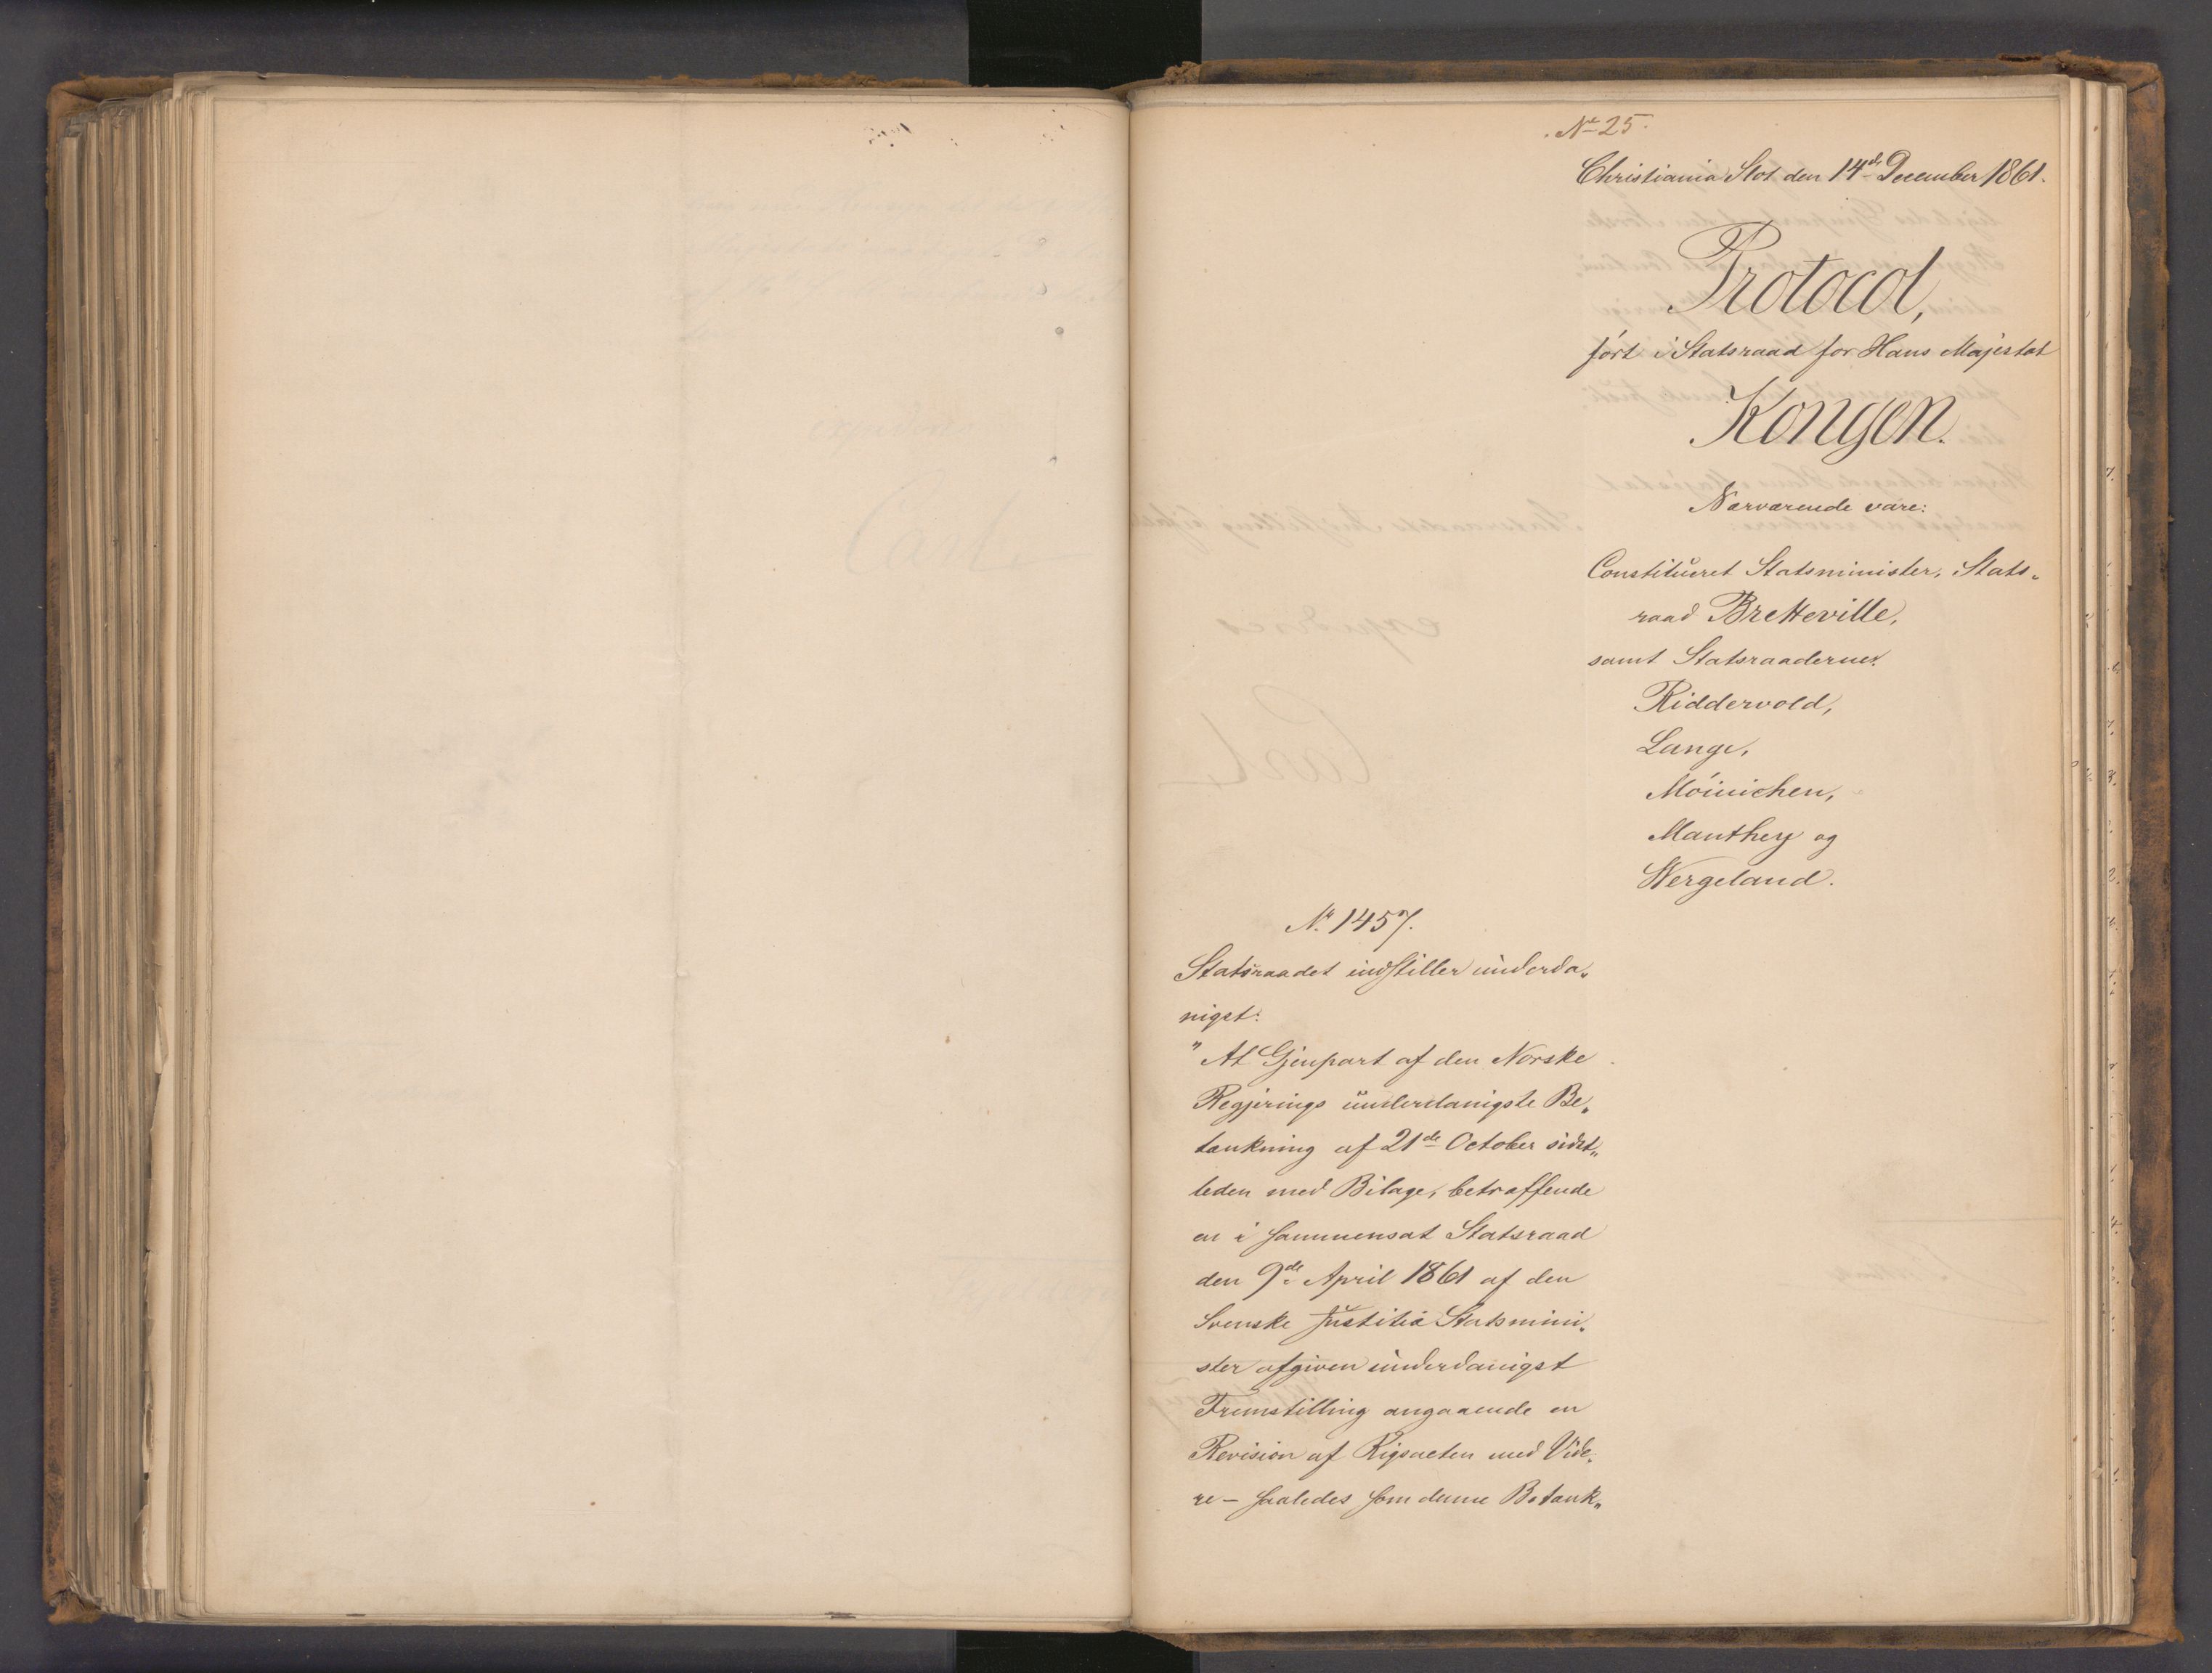 No 25.
Christiania Slot den 14de December 1861.
Protocol,
ført i Statsraad for Hans Majestæt
Kongen.
Nærværende vare:
Constitueret Statsminister, Stats„
raad Bretteville,
samt Statsraaderne:
Riddervold,
Lange,
Móinichen,
Manthey og
Wergeland.
No 1457.
Statsraadet indstiller underda„
nigst:
"At Gjenpart af den Norske
Regjerings underdanigste Be„
tænkning af 21de October sidst„
leden med Bilage, betræffende
en i sammensat Statsraad
den 9de April 1861 af den
Svenske Justitie Statsmini„
ster afgiven underdanigst
Fremstilling angaaende en
Revision af Rigsacten med Vide„
re – saaledes som denne Betænk„